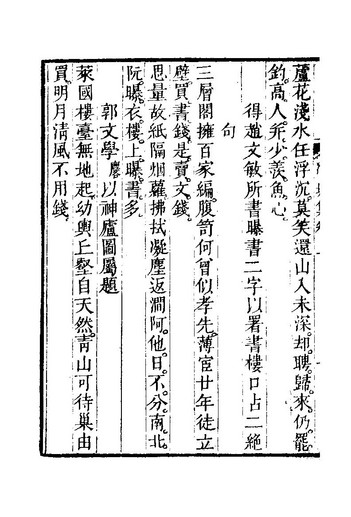 蘆花淺水任浮沉。莫笑還山入未深。却聘。歸。來仍罷
釣。高人並少羨魚心。
得趙文敏所書曝書二字以署書樓口占二絕
句
三層閣擁百家編。腹笥何曾似孝先。薄宦廿年徒立
壁。買書錢。是賣文錢。
思量故紙隔烟蘿。拂拭凝塵返澗阿。他日。不分。南北
阮。曝衣。樓上。曝書多
郭文學麐以神廬圖屬題
萊國樓臺無地起。幼輿丘壑自天然。靑山可待巢由
買。明月清風不用錢。